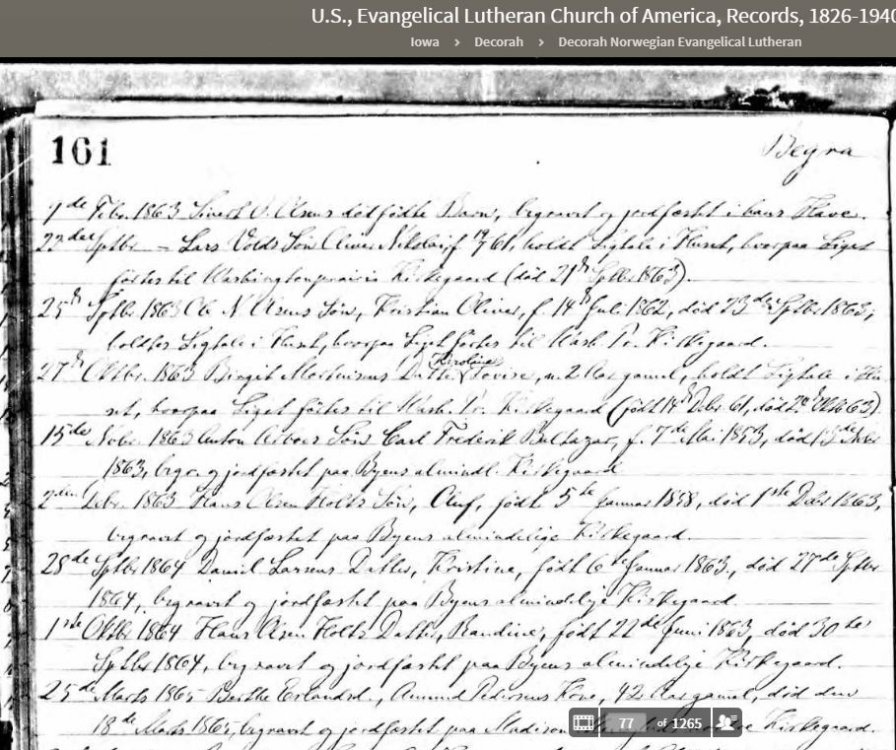 U.S., Evangelical Lutheran Church of America, Records, 1826-1940
Iowa > Decorah > Decorah Norwegian Evangelical Lutheran
161 Begra
7de Febr. 1863 Olsens dødfødte Barn, begravet og jordfæstet i hans Have.
22de Sptbr. — Lars Volds Søn Oliver Nikolai, f. 61, holdt Ligtale i Huset, hvorpaa Liget
førtes til Washingtonprairie Kirkegaard (død 21de Sptbr. 1863).
25de Sptbr. 1863 Ole N. Søn, Kristian Oliver, f. 14de Juli 1862, død 23de Sptbr. 1863,
holdtes Ligtale i Huset, hvorpaa Liget førtes til Wash. Pr. Kirkegaard.
27de Oktbr. 1863 Birgit Datter Karoline Lovise, 2 Aar gammel, holdt Ligtale i Hu
set, hvorpaa Liget førtes til Wash. Pr. Kirkegaard (født 14de Debr. 61, død Oktb. 63)
15de Novbr. 1863 Anton Søn Carl Frederik Baltazar, f. 7de Mai 1853, død
1863, begr. og jordfæstet paa Byens almindl. Kirkegaard
2den Debr. 1863 Hans Olsen Holts Søn, Oluf, født 5te Januar 1858, død 1ste Debr. 1863,
begravet og jordfæstet paa Byens almindelige Kirkegaard.
28de Sptbr. 1864 Daniel Larsens Datter, Kristine, født 6te Januar 1863, død 27de Sptbr.
1864, begravet og jordfæstet paa Byens almindelige Kirkegaard.
1ste Oktbr. 1864 Hans Olsen Holts Datter, Randine, født 22de Juni 1863, død 30te
Sptbr. 1864, begravet og jordfæstet paa Byens almindelige Kirkegaard.
25de Marts 1865 Berthe Erlandsd., Amund Pedersens Kone, 42 Aar gammel, død den
18de Marts 1865, begravet og jordfæstet paa Madison Kirkegaard.
77 of 1265